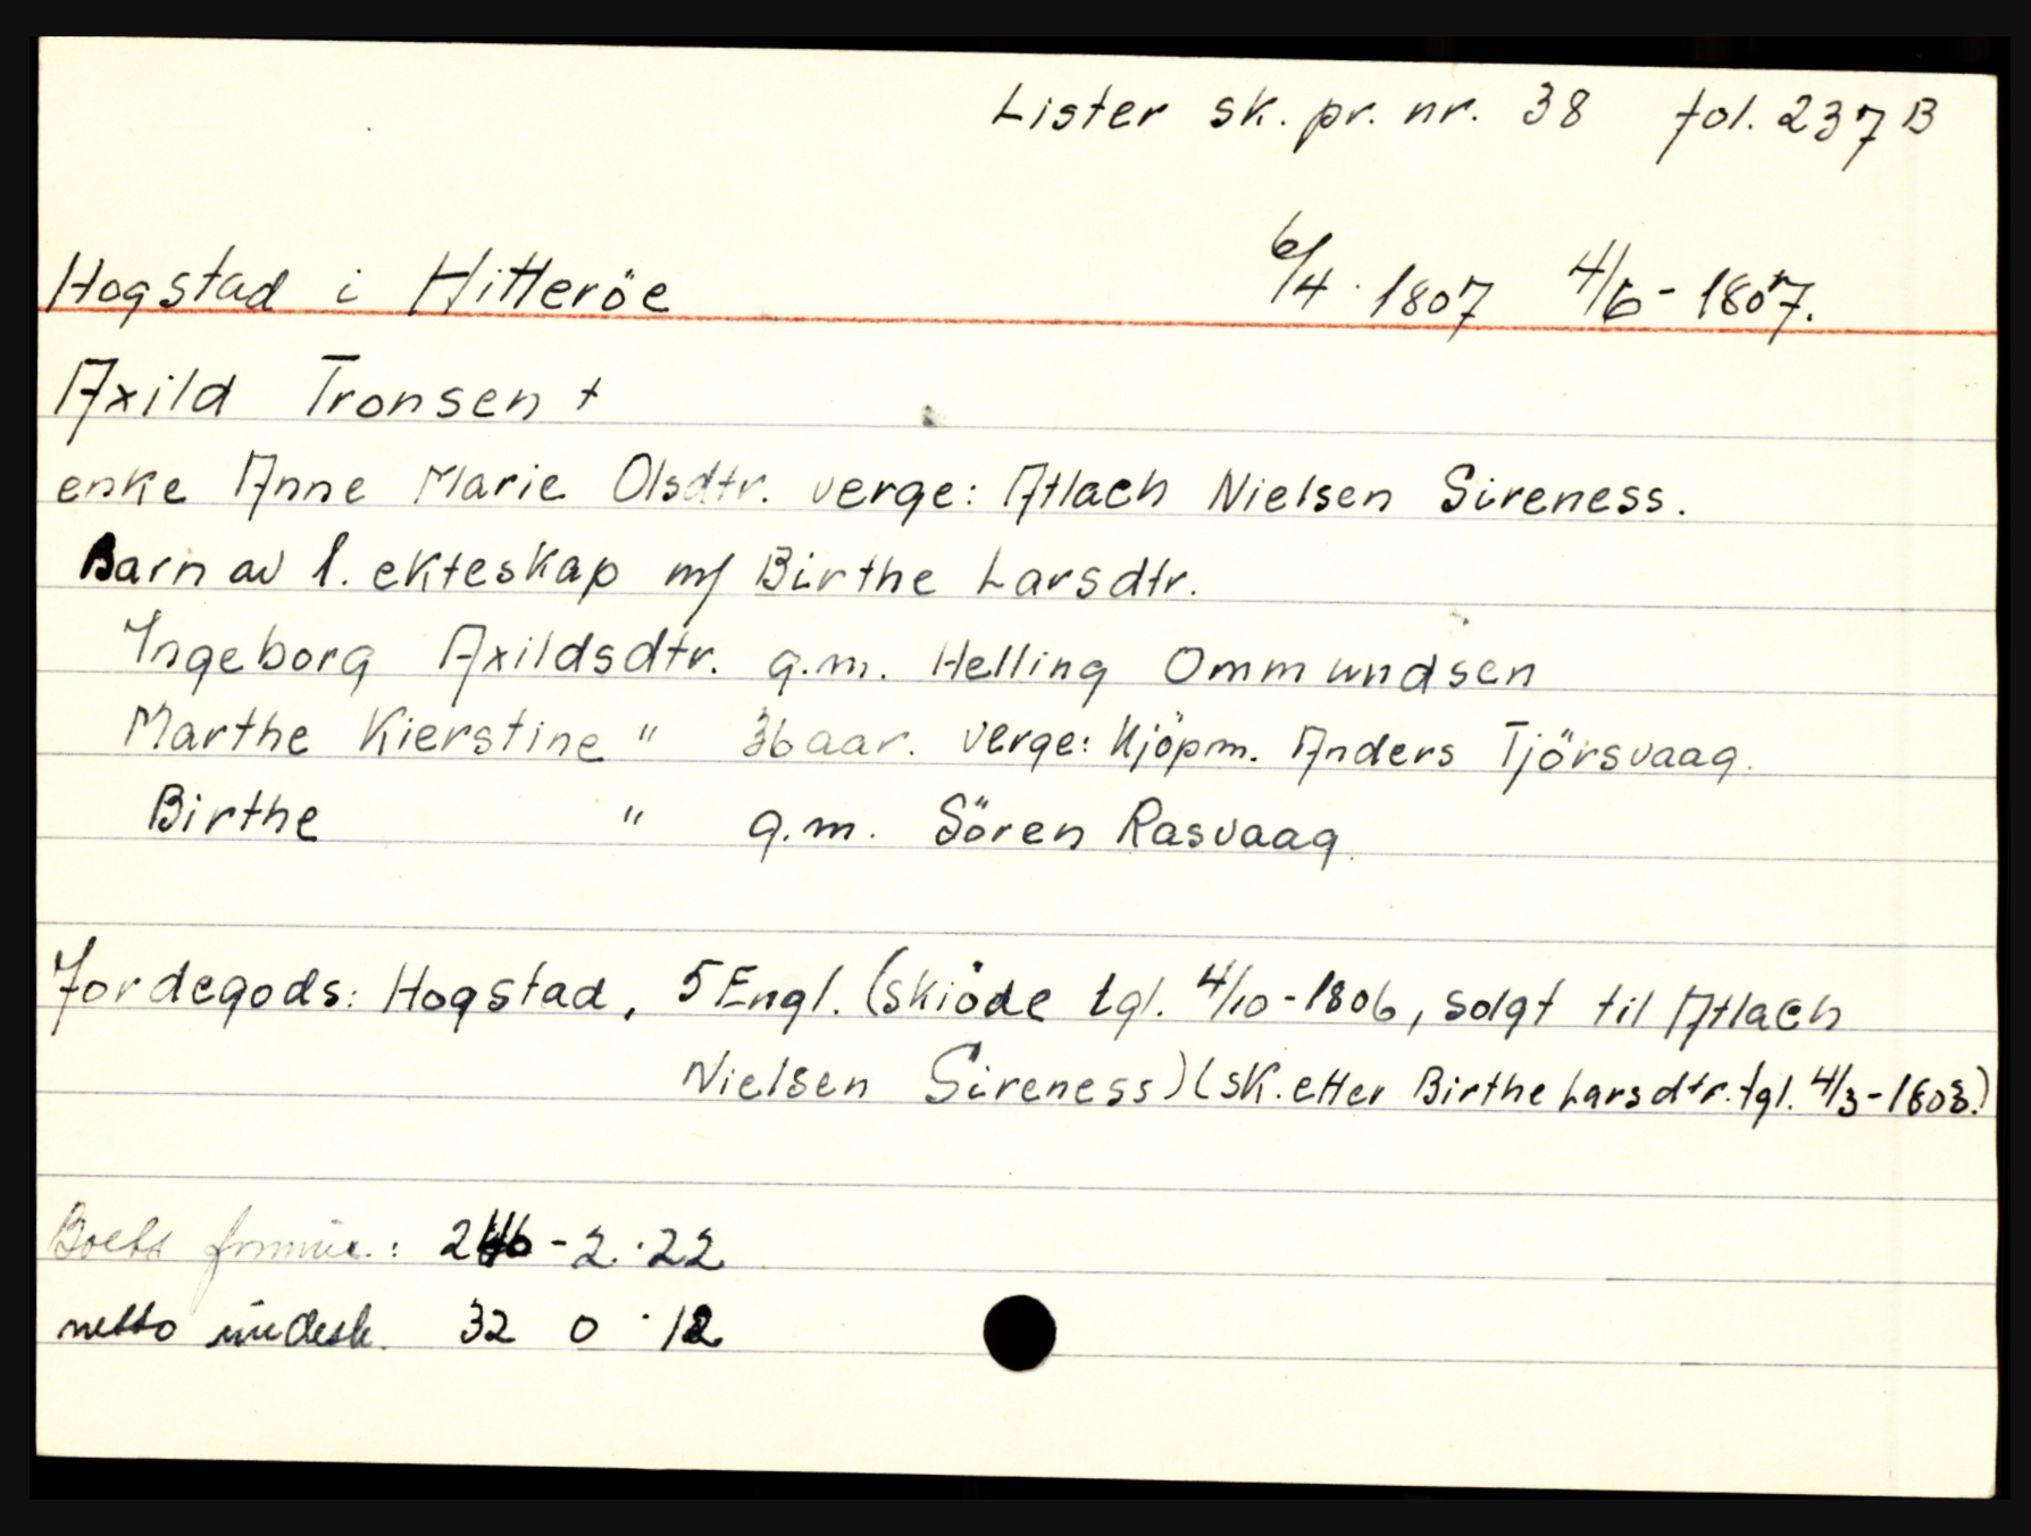 Lister sk. pr. nr. 38 fol. 237 B
Hogstad i Hitteröe 6/4 · 1807 4/6 - 1807.
Axild Tronsen +
enke Anne Marie Olsdtr. verge: Atlach Nielsen Sireness.
Barn av 1. ekteskap m/ Birthe Larsdtr.
Ingeborg Axildsdtr. g.m. Helling Ommundsen
Marthe Kierstine " 36 aar. verge: Kjöpm. Anders Tjörsvaag.
Birthe " g.m. Sören Rasvaag.
Jordegods: Hogstad, 5 Engl. (skiöde tgl. 4/10 - 1806, solgt til Atlach
Nielsen Sireness) (sk. etter Birthe Larsdtr. tgl. 4/3 - 1803.)
Boets : - 2 · 22
netto 32 0 · 12